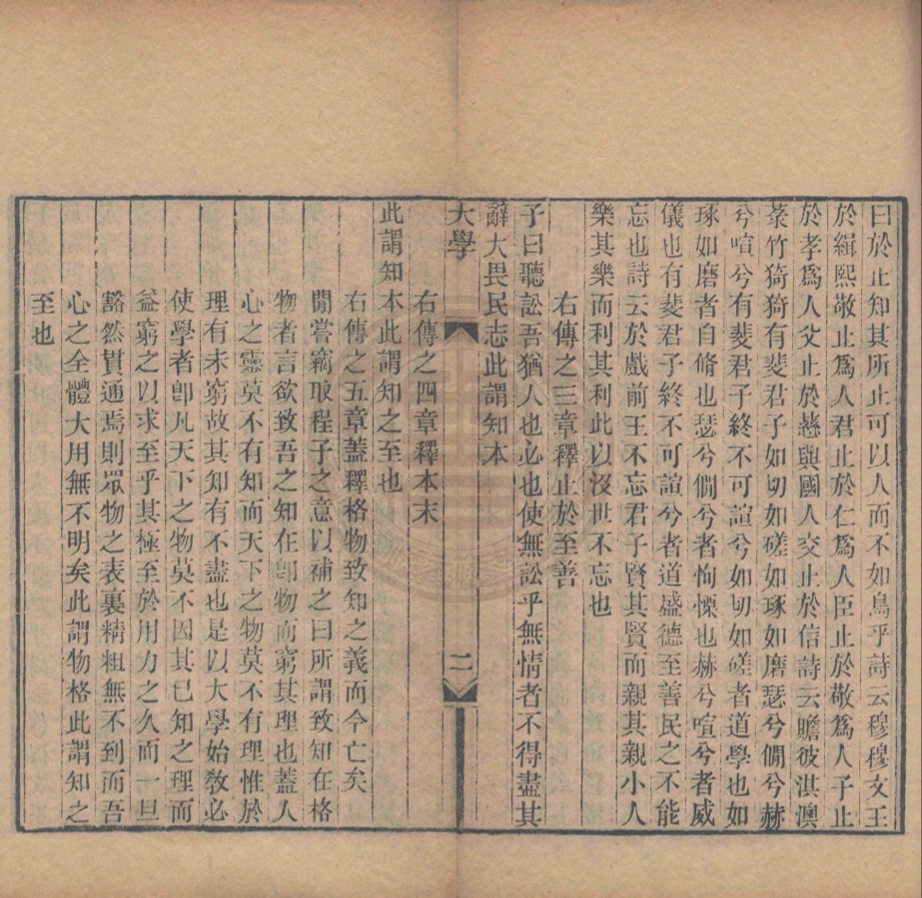 曰於止知其所止可以人而不如鳥乎詩云穆穆文王
於緝熙敬止爲人君止於仁爲人臣止於敬爲人子止
於孝爲人父止於慈與國人交止於信詩云瞻彼淇澳
菉竹猗猗有斐君子如切如磋如琢如磨瑟兮僩兮赫
兮喧兮有斐君子終不可諠兮如切如磋者道學也如
琢如磨者自脩也瑟兮僩兮者恂慄也赫兮喧兮者威
儀也有斐君子終不可諠兮者道盛德至善民之不能
忘也詩云於戲前王不忘君子賢其賢而親其親小人
樂其樂而利其利此以沒世不忘也
右傳之三章釋止於至善
子曰聽訟吾猶人也必也使無訟乎無情者不得盡其
辭大畏民志此謂知本
大學
二
右傳之四章釋本末
此謂知本此謂知之至也
右傳之五章蓋釋格物致知之義而今亡矣
閒嘗竊取程子之意以補之曰所謂致知在格
物者言欲致吾之知在卽物而窮其理也蓋人
心之靈莫不有知而天下之物莫不有理惟於
理有未窮故其知有不盡也是以大學始敎必
使學者卽凡天下之物莫不因其已知之理而
益窮之以求至乎其極至於用力之久而一旦
豁然貫通焉則眾物之表裏精粗無不到而吾
心之全體大用無不明矣此謂物格此謂知之
至也